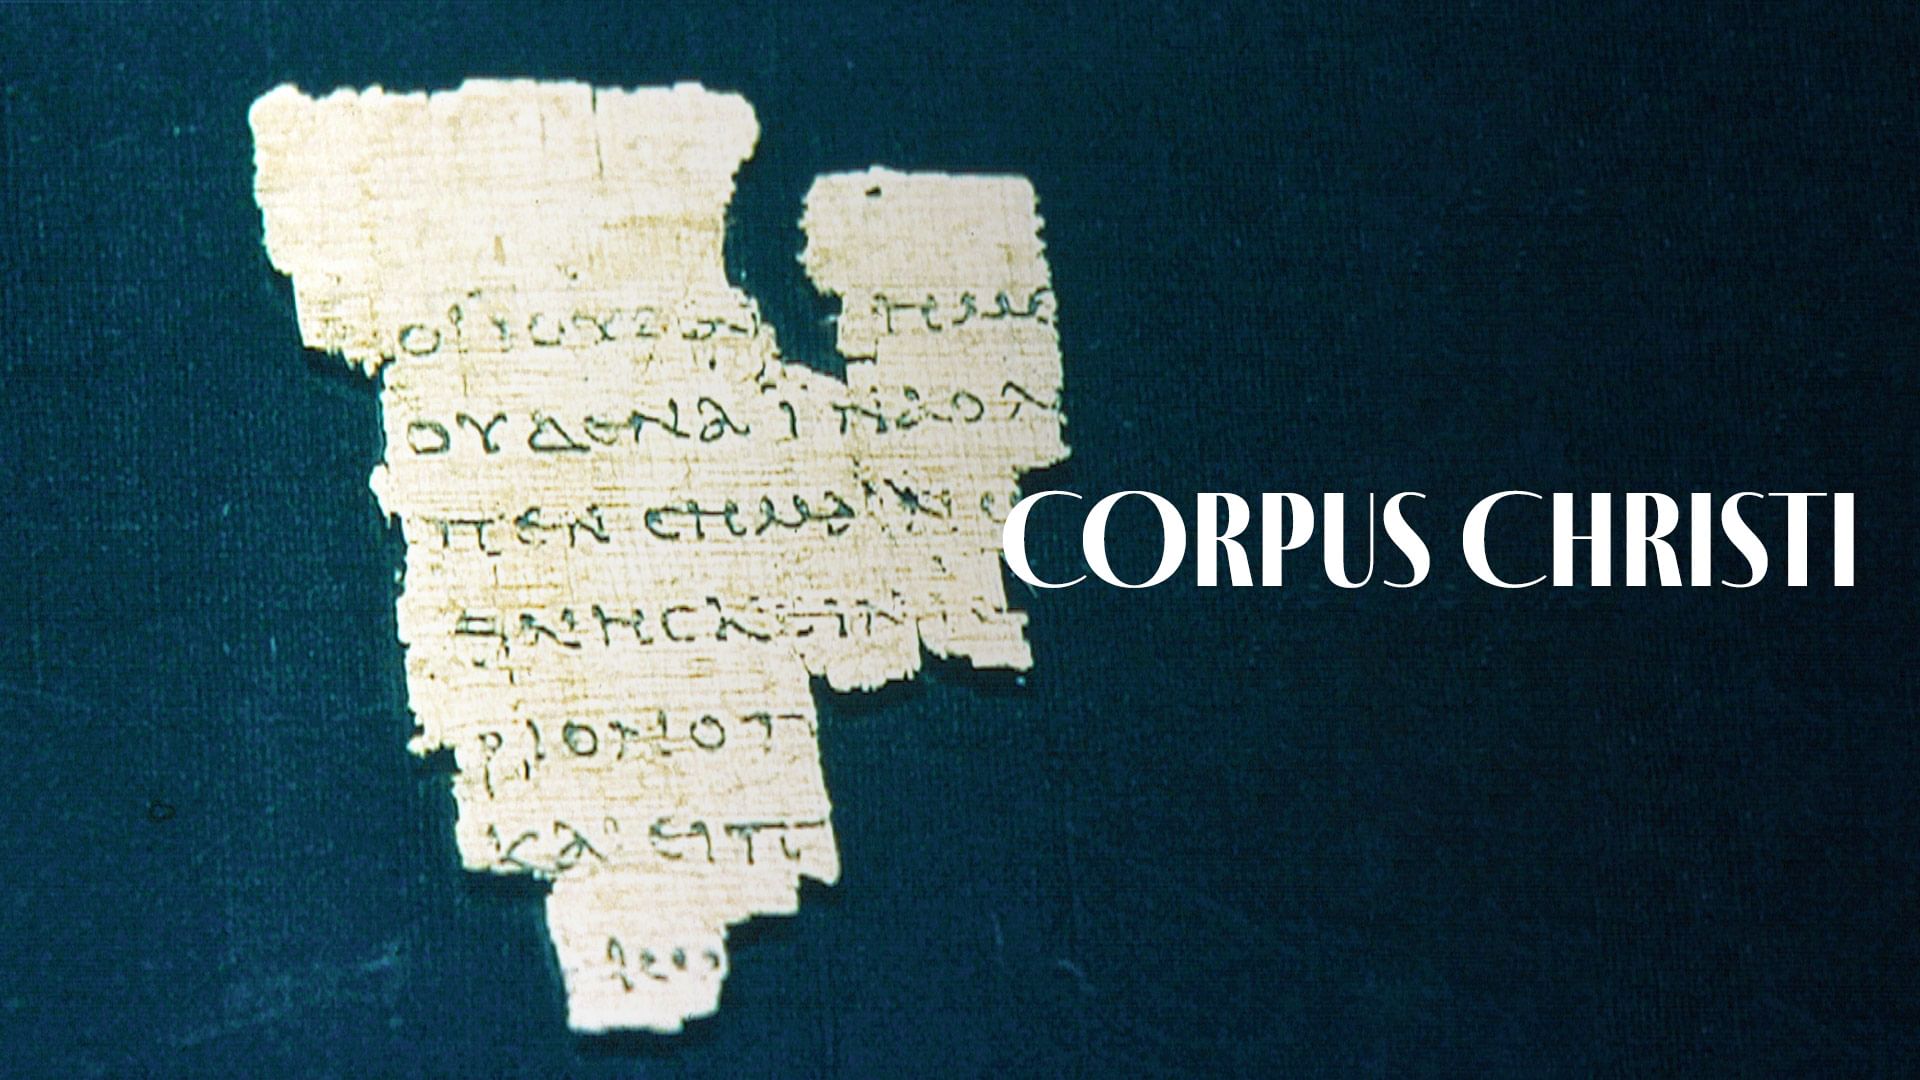 ΟΙ ΙΟΥΔΑΙ ΗΜΕ
ΟΥΔΕΝΑ ΙΝΑ Ο Λ
ΠΕΝ CΗΜΑΙΝΩ
ΘΝΗCΚΕΙΝ
ΡΙΟΝ Ο Π
ΚΑΙ ΕΙΠ
CORPUS CHRISTI